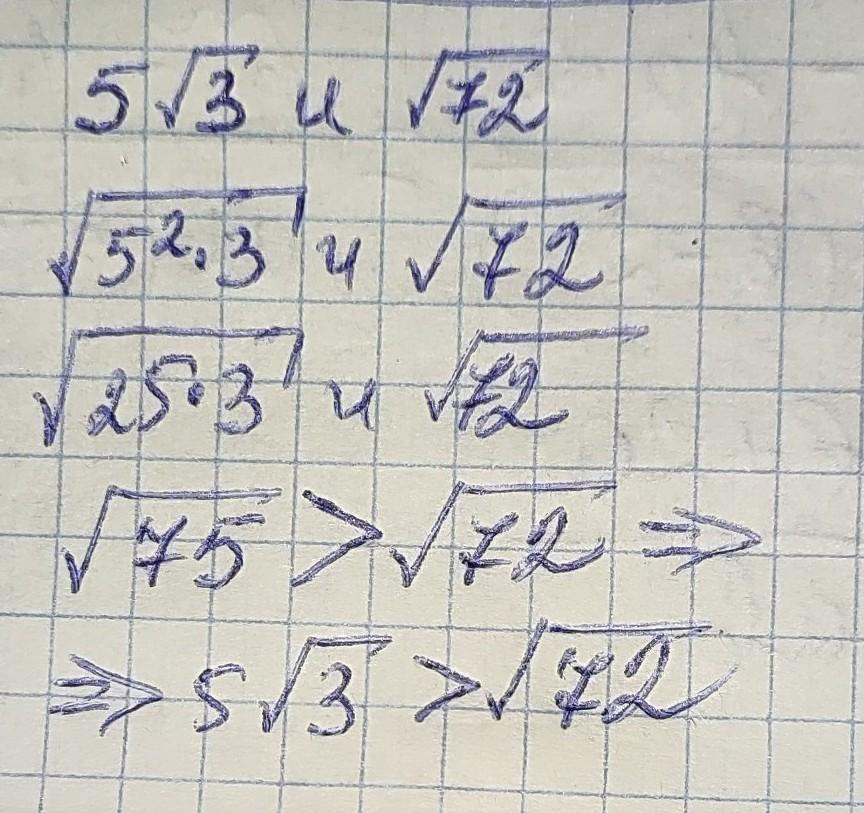 5√3 и √72
√5²·3 и √72
√25·3 и √72
√75 > √72 ⇒
⇒ 5√3 > √72